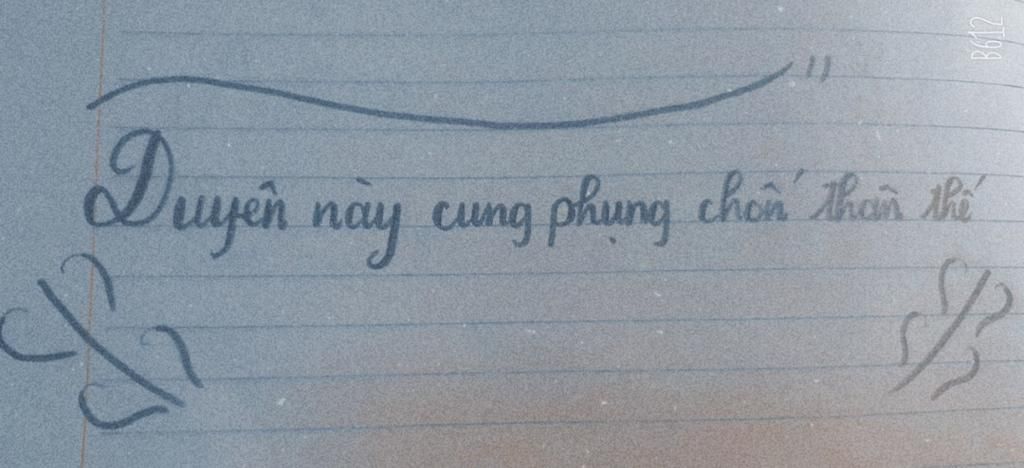 "
Duyên này cung phụng chốn thần thế
B612